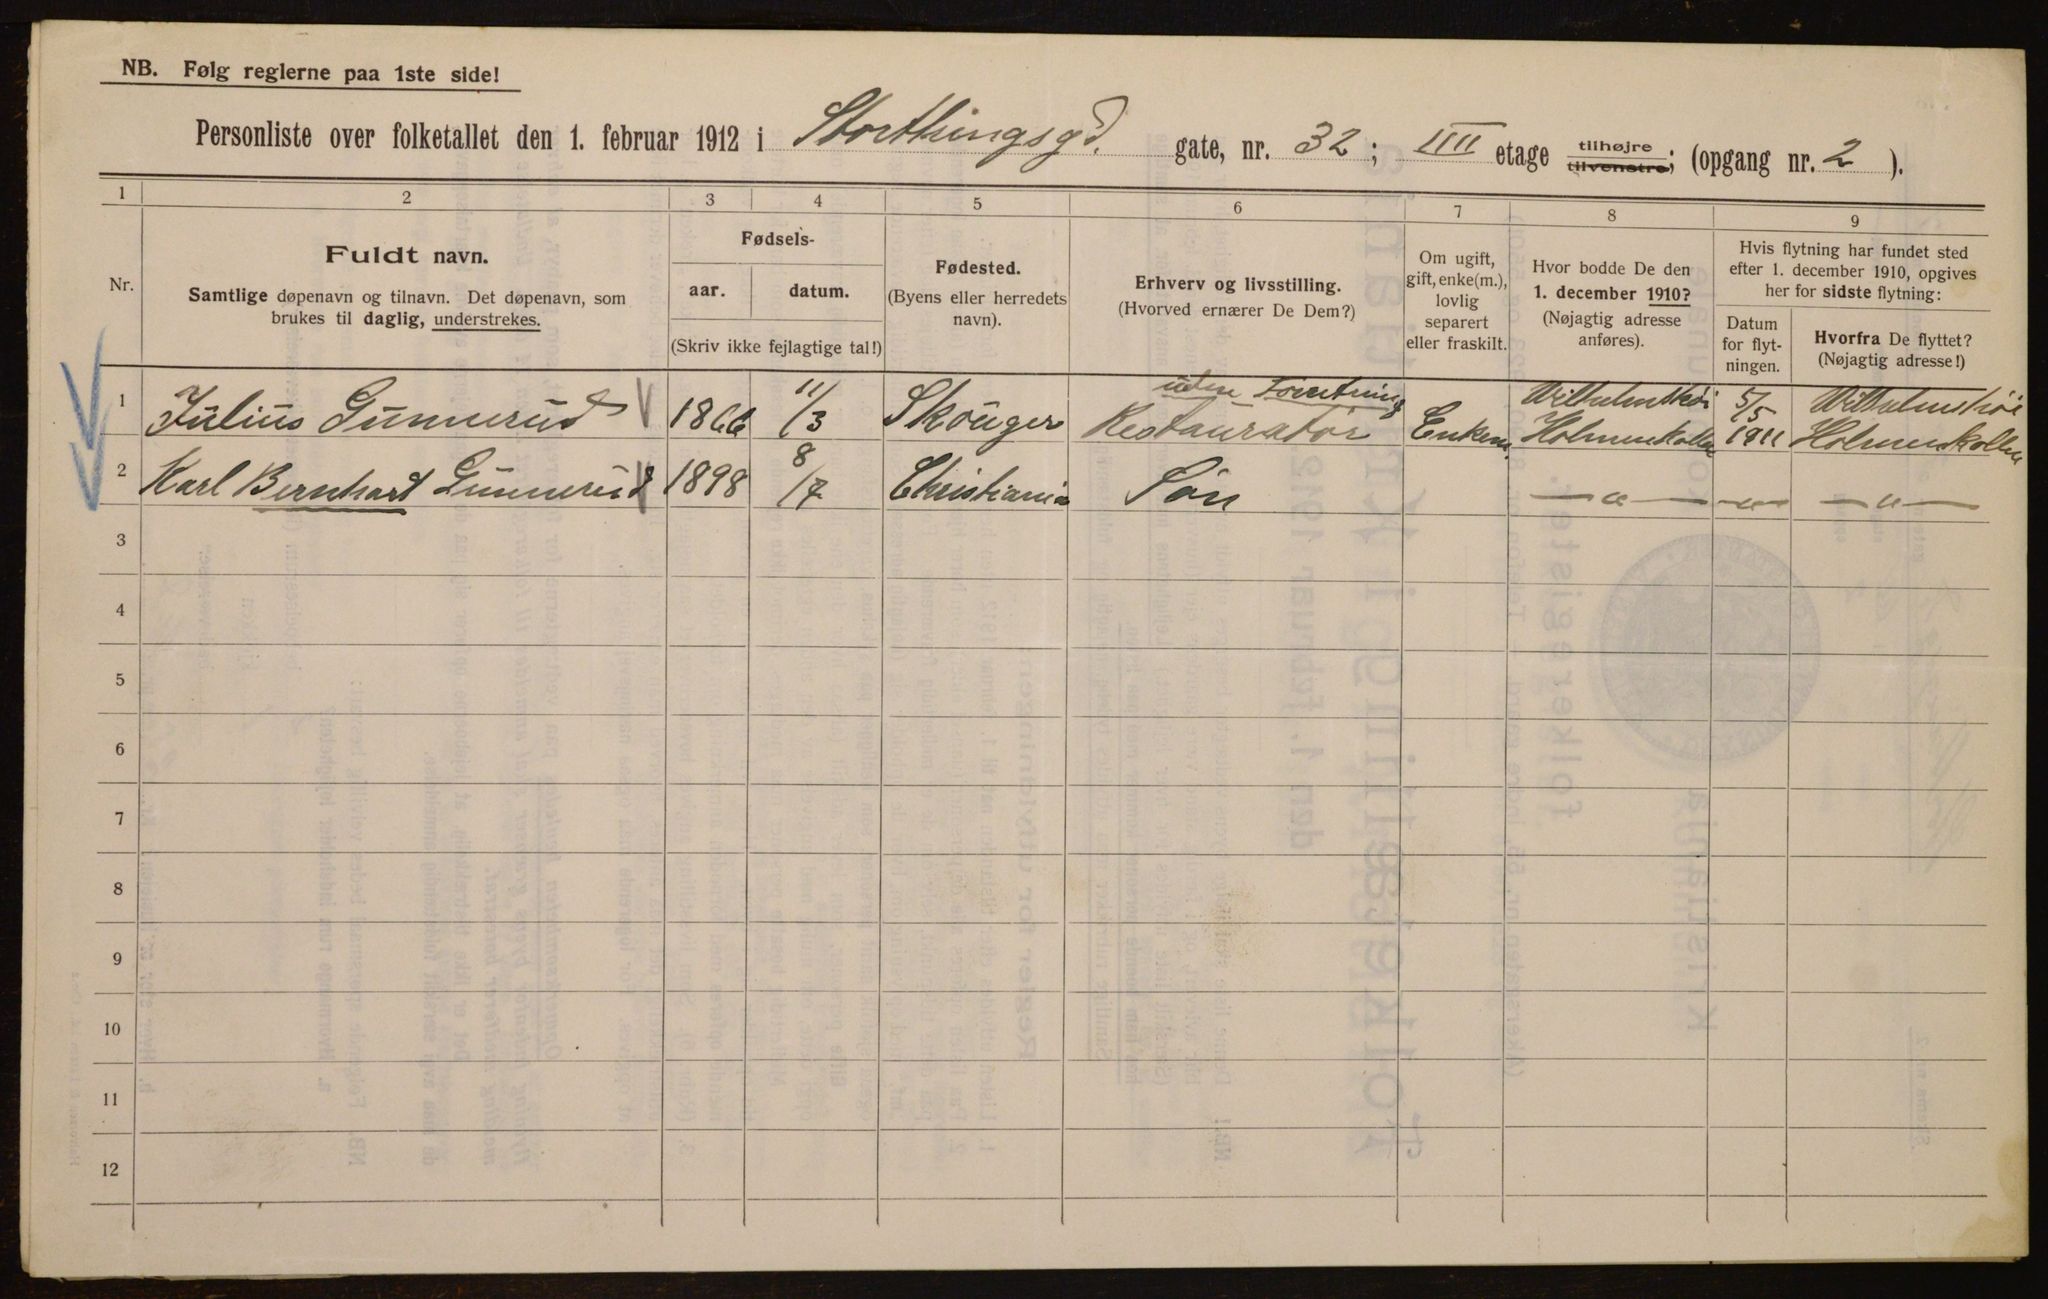 NB. Følg reglerne paa 1ste side!
Personliste over folketallet den 1. februar 1912 i Storthingsgd. gate, nr. 32; IIII etage tilhøjre tilvenstre; (opgang nr. 2 ).
1 2 3 4 5 6 7 8 9
Nr.
Fuldt navn.
Samtlige døpenavn og tilnavn. Det døpenavn, som
brukes til daglig, understrekes.
Fødsels-
aar. datum.
(Skriv ikke fejlagtige tal!)
Fødested.
(Byens eller herredets
navn).
Erhverv og livsstilling.
(Hvorved ernærer De Dem?)
Om ugift,
gift, enke(m.),
lovlig
separert
eller fraskilt.
Hvor bodde De den
1. december 1910?
(Nøjagtig adresse
anføres).
Hvis flytning har fundet sted
efter 1. december 1910, opgives
her for sidste flytning:
Datum
for flyt-
ningen.
Hvorfra De flyttet?
(Nøjagtig adresse!)
1 Julius Gunnerud 1866 11/3 Skouger uden Forretning Restauratør Enkem. Wilhelmshøi Holmenkollen 5/5 1911 Wilhelmshøi Holmenkollen
2 Karl Bernhart Gunnerud 1898 8/7 Christiania Søn — " — — " — — " —
3
4
5
6
7
8
9
10
11
12